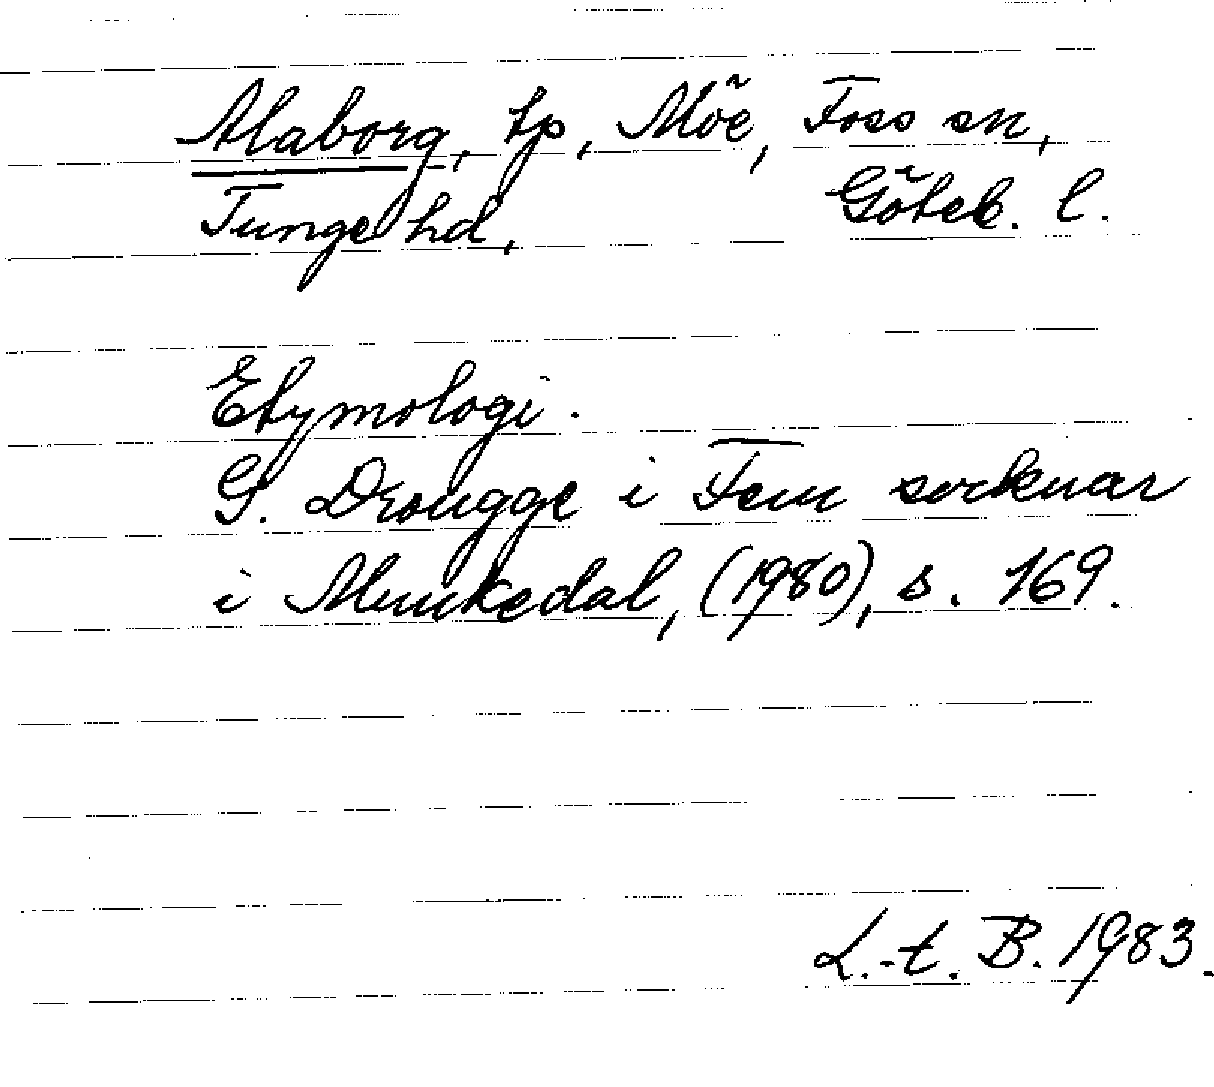 Alaborg, tp, Möe, Foss sn,
Tunge hd, Göteb. l.
Etymologi.
G. Drougge i Fem socknar
i Munkedal, (1980), s. 169.
L.-t. B. 1983.